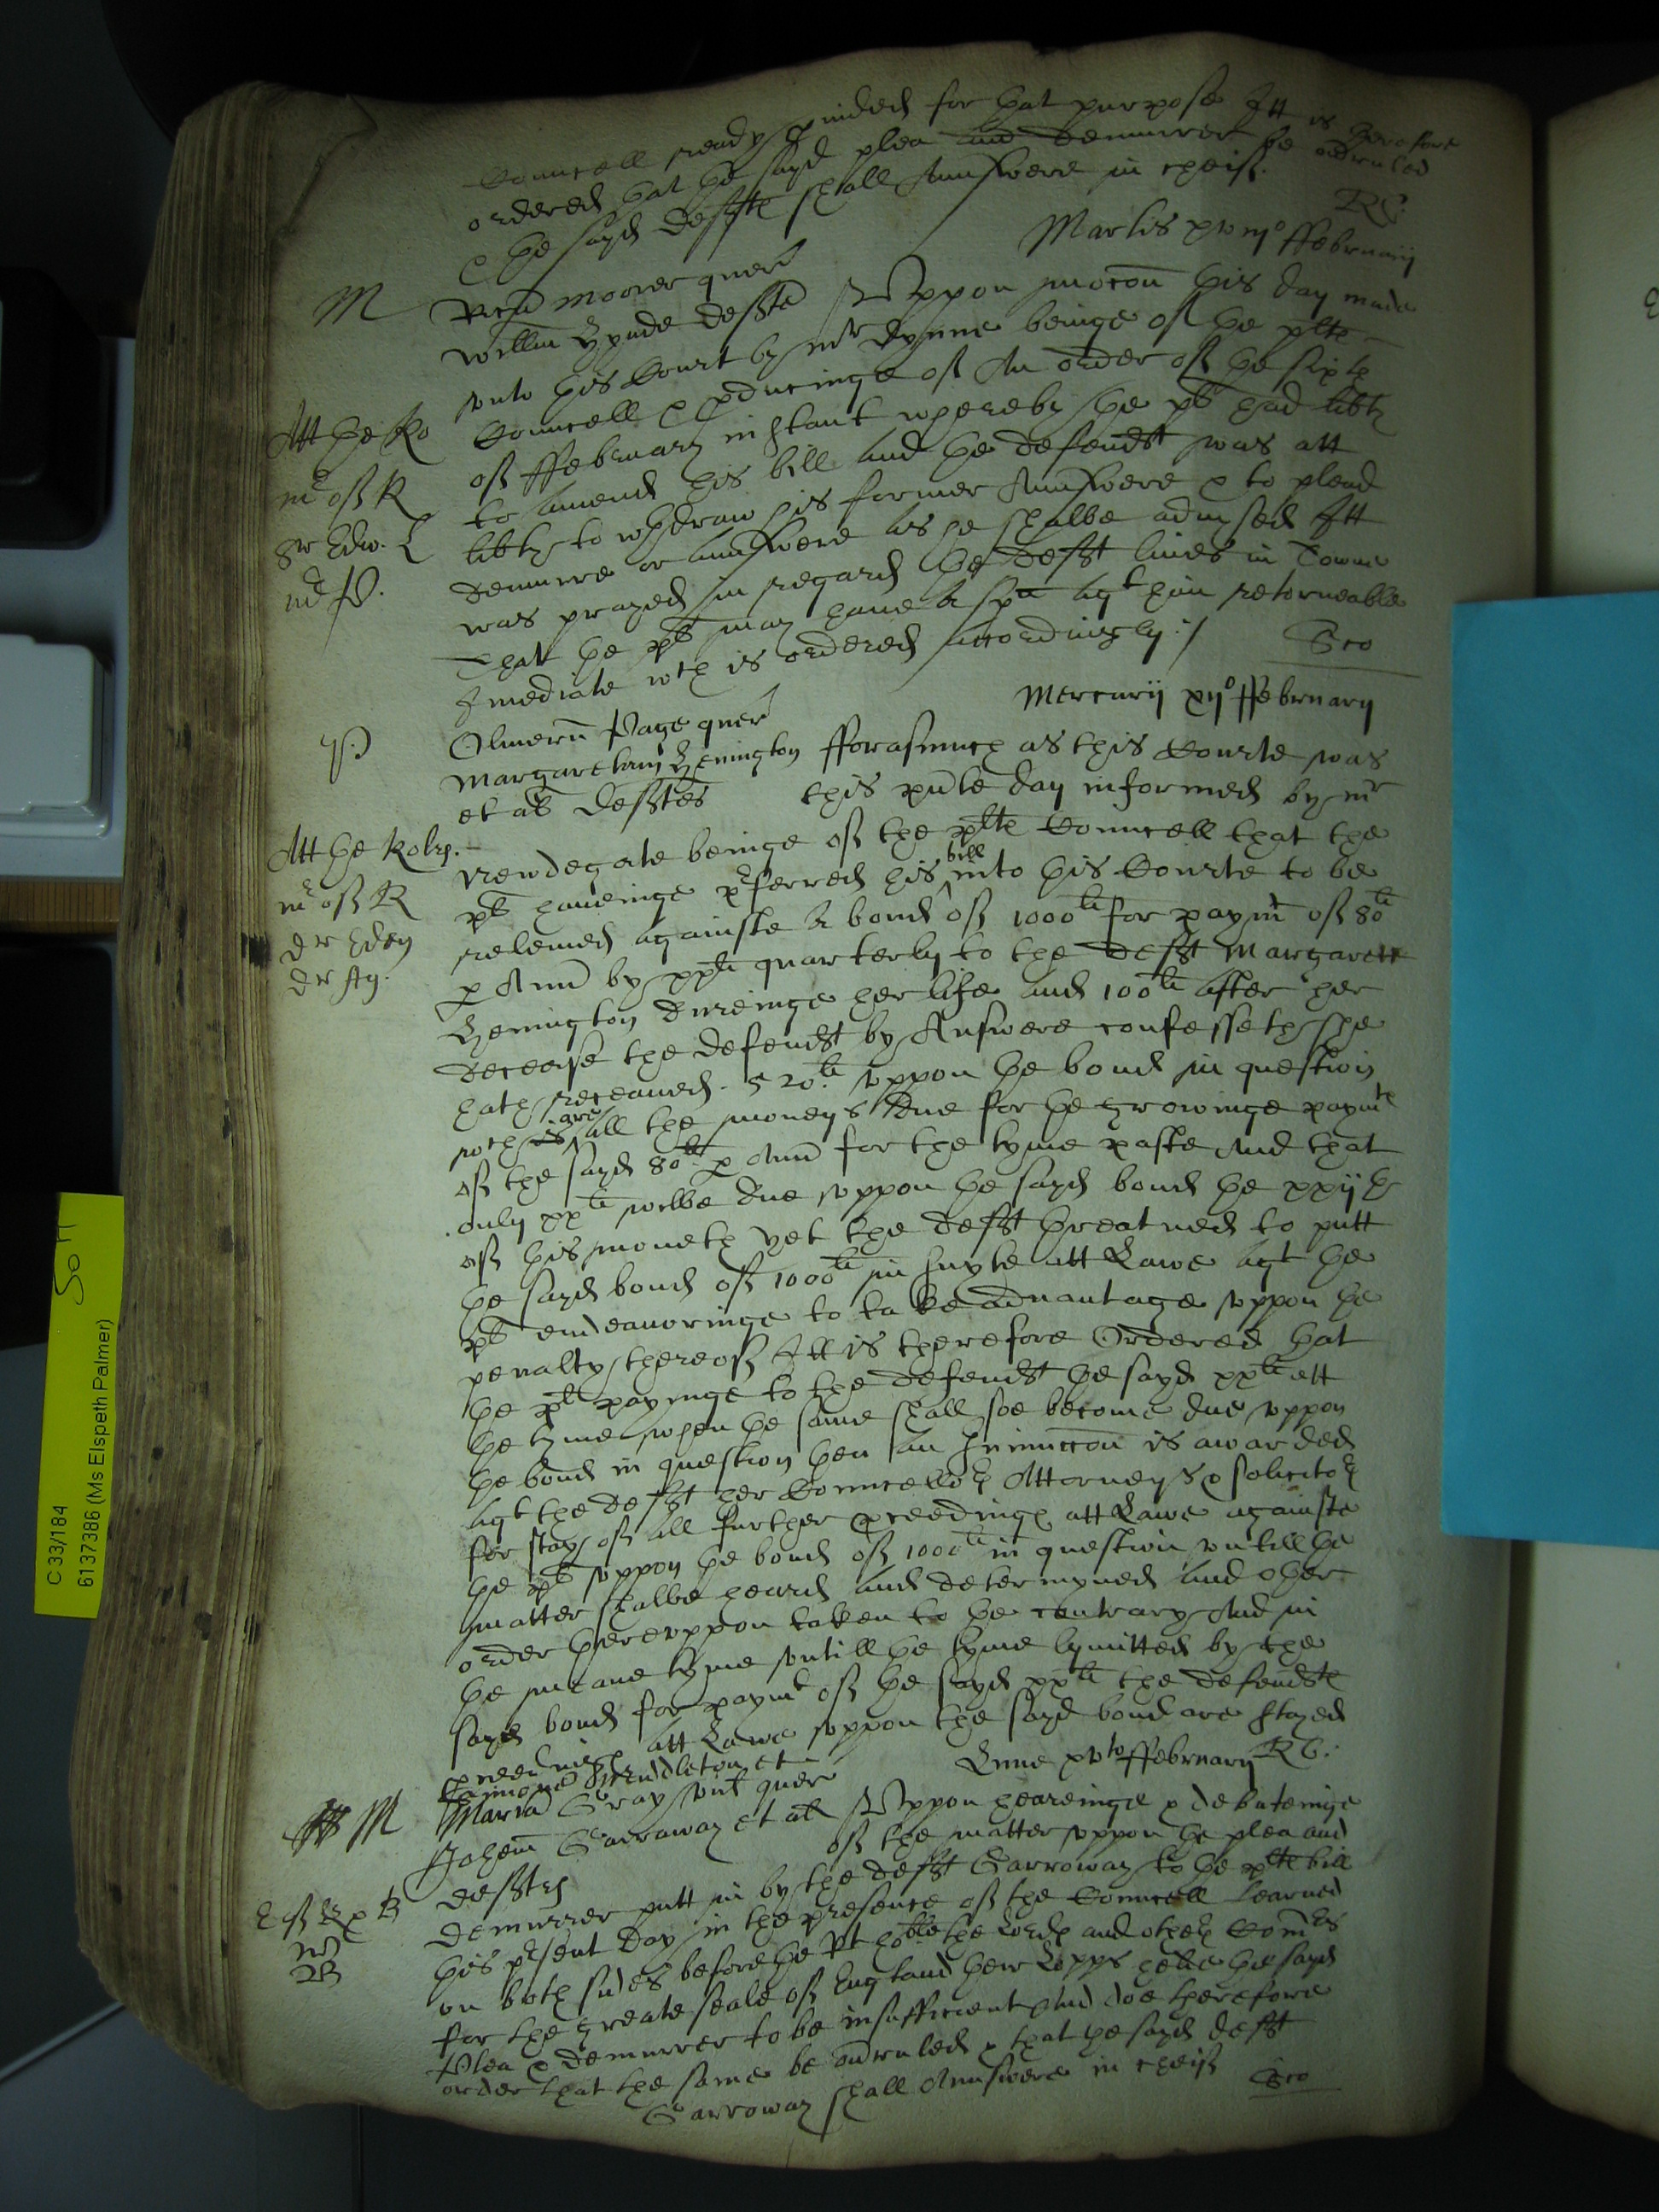 Councell ready ... minded for that purpose Itt is therefore
ordered that the sayd plea and demurrer be overruled
& the sayd defftes shall Aunswere in cheif.
RC:
Martis ... ffebruarij
M
Ricu Moorer quer
Willm Hynde defft Uppon mocon this day made
unto this Court by mr Dynne beinge of the pltes
Councell & pducinge of An order of the sixth
Att the Ro
of ffebruary instant whereby the plt had libty
mr of R
to amend his bill and the defendt was att
Sr Edw. L
libty to wthdraw his former Aunswere & to plead
mr P.
demurre or aunswere as he shalbe advysed Itt
was prayed in regard the defft lives in Towne
that the plt may have A spa agt him retorneable
Imediate wch is ordered accordingly :/
Mercurij xijo ffebruary
P
Oliverū Page quer
Margaretam Henington fforasmuch as this Courte was
et al defftes this pnte day informed by mr
Att the Rolls.
Newdegate beinge of the pltes Councell that the
plt haveinge pferred his bill into this Courte to be
mr of R
releived againste A bond of 1000li for paymt of 80li
dr Eden
p Ann by xxli quarterly to the defft Margarett
Henington dureinge her life and 100li after her
decease the defendt by Answere confesseth she
hath receaved. 520li uppon the bond in question
wch is are all the moneys due for the growinge paymte
of the sayd 80li p Ann for the tyme paste And that
only xxli wilbe due uppon the sayd bond the xxijth
of this moneth yet the defft threatned to putt
the sayd bond of 1000li in suyte att Lawe agt the
plt endeavoringe to take advantage uppon the
penalty thereof Itt is therefore Ordered that
the plt payinge to the defendt the sayd xxli att
the tyme when the same shall soe become due uppon
the bond in question then an Iniunccon is awarded
agt the defft her Councellors Attorneys & solicitors
for stay of all further pceedings att Lawe againste
the plt uppon the bond of 1000li in question untill the
matter shalbe heard and determyned and other
order thereuppon taken to the contrary And in
the meane tyme untill the tyme lymitted by the
sayd bond for paymt of the sayd xxli the defendtes
pceedings att Lawe uppon the sayd bond are stayed
Lune ... ffebruary RC:
M
... Middleton et
Maria Gray vid quer
Johem Garraway et al Uppon heareinge & debateinge
defftes of the matter uppon the plea and
demurrer putt in by the defft Garroway to the pltes bill
this psent day in the presence of the Councell learned
on both sides before the Rt hoble the Lords and other Comrs
for the greate seale of England their Lopps held the sayd
Plea & demurrer to be insufficient And doe therefore
order that the same be overruled & that the sayd defft
Garroway shall Aunswere in cheif
C 33/184
6137386 (Ms Elspeth Palmer)